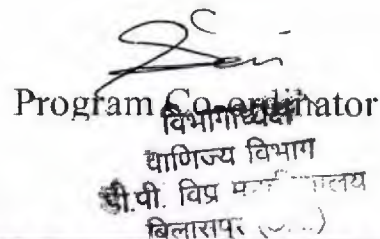 Program Co-ordinator
विभागाध्यक्ष
वाणिज्य विभाग
डी.पी. विप्र
बिलासपुर